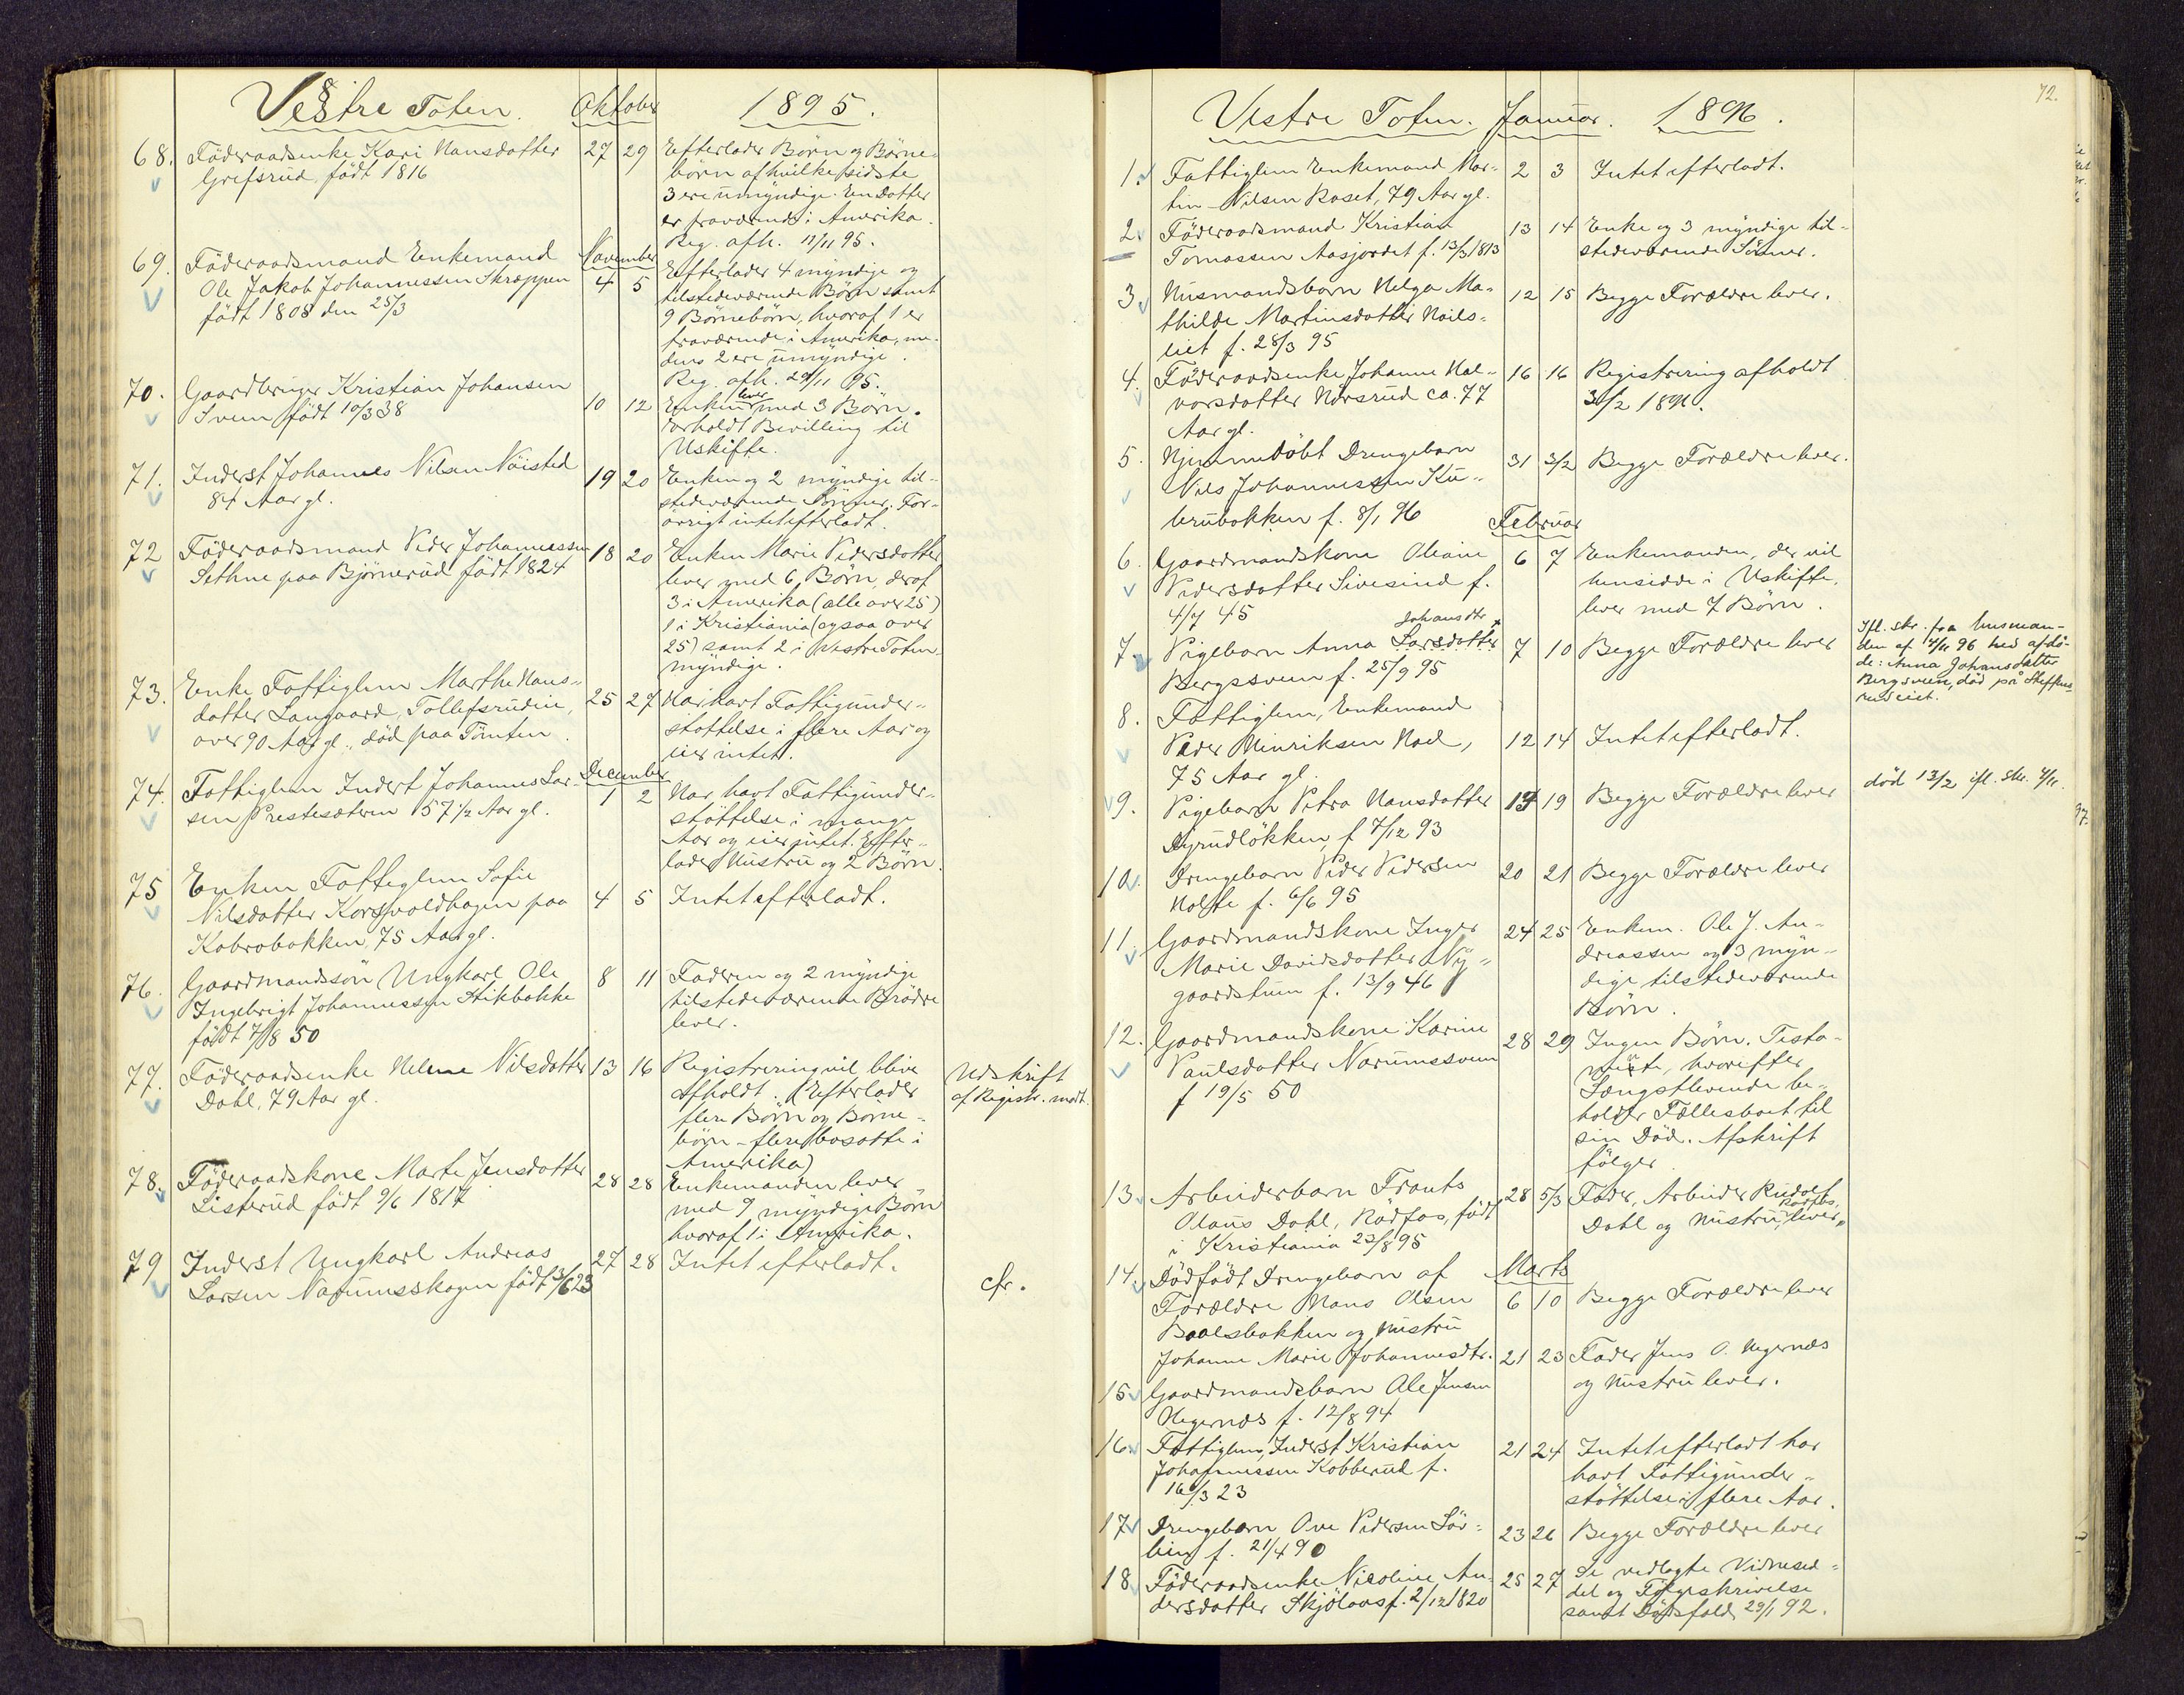 Vestre Toten. Oktober 1895.
68. Föderaadsenke Kari Hansdatter 27 29 Efterlader Börn og Börne-
Grefsrud, født 1816 börn af hvilke sidste
3 ere umyndige. En Datter
er fraværende i Amerika.
Reg. afh. 11/11 95.
November
69. Föderaadsmand Enkemand Efterlader 4 myndige og
Ole Jakob Johannessen Skræppen 4 5 tilstedeværende Börn samt
født 1808 den 25/3 9 Börnebörn, hvoraf 1 er
fraværende i Amerika, me-
dens 2 ere umyndige.
Reg. afh. 29/11 95.
70. Gaardbruger Kristian Johansen 10 12 Enken lever med 3 Börn.
Sveen født 10/3 38 Erholdt Bevilling til
Uskifte.
71. Inderst Johannes Nilsen Nöisted 19 20 Enken og 2 myndige til-
84 Aar gl. stedeværende Sönner. For-
övrigt intet efterladt.
72 Föderaadsmand Peder Johannessen 18 20 Enken Marie Pedersdatter
Sethne paa Björnerud født 1824 lever med 6 Börn, deraf
3 i Amerika (alle over 25)
1 i Kristiania (ogsaa over
25) samt 2 i Vestre Toten
myndige.
73. Enke Fattiglem Marthe Hans- 25 27 Har havt Fattigunder-
datter Langaard, Tollefsrudeie, stöttelse i flere Aar og
over 90 Aar gl., död paa Tömten. eier intet.
December
74. Fattiglem Inderst Johannes Lar- 1 2 Har havt Fattigunder-
sen Prestesæteren 57 1/2 Aar gl. stöttelse i mange
Aar og eier intet. Efter-
lader Hustru og 2 Börn.
75 Enken Fattiglem Sofie 4 5 Intet efterladt.
Nilsdatter Korsvoldhagen paa
Kobrobakken, 75 Aar gl.
76. Gaardmandssön Ungkarl Ole 8 11 Faderen og 2 myndige
Ingebrigt Johannessen Stikbakke tilstedeværende Brödre
födt 7/8 50 lever.
77. Föderaadsenke Helene Nilsdatter 13 16 Registrering vil blive Udskrift
Dahl, 79 Aar gl. afholdt. (Efterlader af Registr. modt.
flere Börn og Börne-
börn – flere bosatte i
Amerika)
78. Föderaadskone Marte Jensdatter 28 28 Enkemanden lever
Listerud født 9/6 1817 med 9 myndige Börn
hvoraf 1 i Amerika.
79 Inderst Ungkarl Andreas 27 28 Intet efterladt.
Larsen Narumsskogen født 3/6 23 cfr.
72.
Vestre Toten. Januar. 1896.
1. Fattiglem Enkemand Mar- 2 3 Intet efterladt.
tin Nilsen Roset, 79 Aar gl.
2. Föderaadsmand Kristian 13 14 Enke og 3 myndige til-
Tomassen Aasjordet f. 13/3 1813 stedeværende Sönner.
3. Husmandsbarn Helga Ma- 12 15 Begge Forældre lever.
thilde Martinsdatter
eiet f. 28/3 95
4. Föderaadsenke Johanne Hal- 16 16 Registrering afholdt
vorsdatter Nörsrud ca. 77 3/2 1896.
Aar gl.
5. Hjemmedöbt Drengebarn 31 3/2 Begge Forældre lever.
Nils Johannessen Ku-
brubakken f. 8/1 96
Februar
6. Gaardmandskone Oleane 6 7 Enkemanden, der vil
Pedersdatter Sivesind f. hensidde i Uskifte,
4/7 45 lever med 7 Börn.
Johansdtr
7. Pigebarn Anna Larsdatter 7 10 Begge Forældre lever Ifl. skr. fra lensman-
Bergssveen f. 25/9 95 den af 14/11 96 hed afdö-
de: Anna Johansdatter
Bergsveen, död på Steffens-
rudeiet.
8. Fattiglem, Enkemand
Peder Henriksen Hoel, 12 14 Intet efterladt.
75 Aar gl.
9. Pigebarn Petra Hansdatter 19 Begge Forældre lever död 13/2 ifl. skr.
Dyrudlökken, f 7/12 93
10. Drengebarn Peder Pedersen 20 21 Begge Forældre lever
Holste f. 6/6 95
11. Gaardmandskone Inger 24 25 Enkem. Ole J. An-
Marie Davidsdatter Ny- dreassen og 3 myn-
gaardstuen f. 13/9 46 dige tilstedeværende
Börn.
12. Gaardmandskone Karine 28 29 Ingen Börn. Testa-
Paulsdatter Narumssveen mente, hvorefter
f 19/5 50 Længstlevende be-
holder Fællesboet til
sin Död. Afskrift
fölger.
13. Arbeiderbarn Frants 28 5/3 Fader, Arbeider Rudolf
Olaus Dahl, Rödfos, födt Dahl og Hustru, Rödfos, lever.
i Kristiania 23/8 95
Marts
14. Dödfödt Drengebarn af
Forældre Hans Olsen 6 10 Begge Forældre lever
Baalsbakken og Hustru
Johanne Marie Johannesdtr. 21 23 Fader Jens O. Hegernæs
15 Gaardmandsbarn Ole Jensen og Hustru lever.
Hegernæs f. 12/8 94
16. Fattiglem, Inderst Kristian 21 24 Intet efterladt har
Johannessen Kobberud f. havt Fattigunder-
16/3 23 stöttelse i flere Aar.
17 Drengebarn Ove Pedersen Sör- 23 26 Begge Forældre lever
lien f. 21/4 90
18 Föderaadsenke Nicoline An- 25 27 Se vedlagte Vidnesed-
dersdatter Skjölaas f. 2/12 1820 del og Fölgeskrivelse
samt Dödsfald 29/1 92.